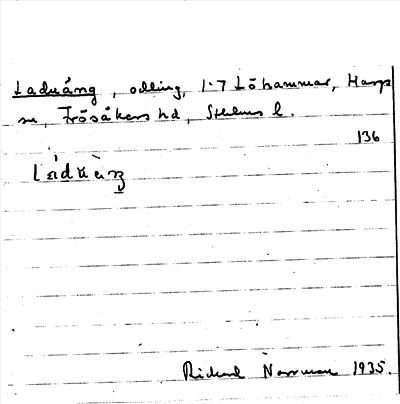 Laduäng, odling, 1:7 Löhammar, Harg
sn, Frösåkers hd, Sthlms l.
136
Rickard Norrman 1935.